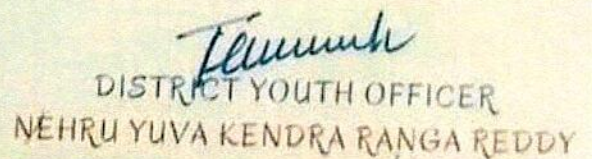 DISTRICT YOUTH OFFICER
NEHRU YUVA KENDRA RANGA REDDY